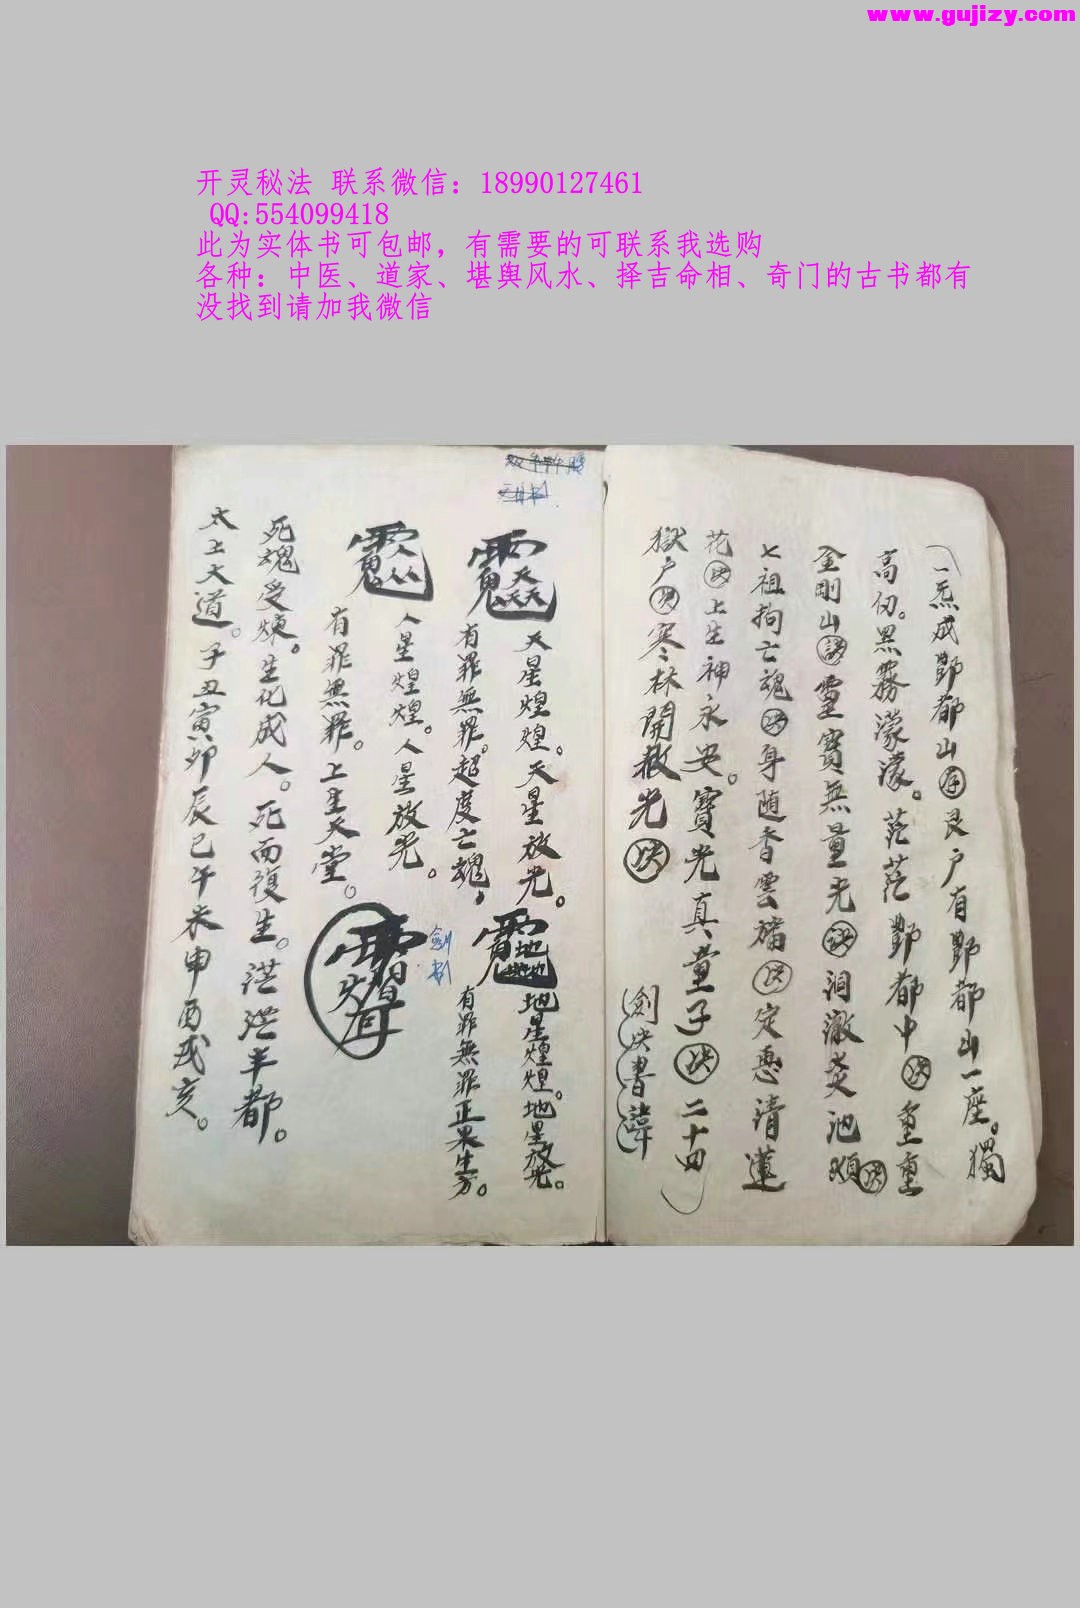 www.gujizy.com
开灵秘法 联系微信：18990127461
QQ:554099418
此为实体书可包邮，有需要的可联系我选购
各种：中医、道家、堪舆风水、择吉命相、奇门的古书都有
没找到请加我微信
一炁成酆都山存艮户有酆都山一座。獨
高仞。黑霧濛濛。茫茫酆都中訣重重
金剛山訣靈寶無量光訣洞澈炎池煩訣
七祖拘亡魂訣身随香雲旛訣定惠清蓮
花訣上生神永安。寶光真童子訣二十四
獄户訣寒林開赦光訣 劍訣書諱
天星煌煌。天星放光。
地星煌煌。地星放光。
有罪無罪。超度亡魂，
有罪無罪正果生方。
人星煌煌。人星放光。
劍
有罪無罪。上生天堂。
死魂受煉。生化成人。死而復生。茫茫丰都。
太上大道。子丑寅卯辰巳午未申酉戌亥。